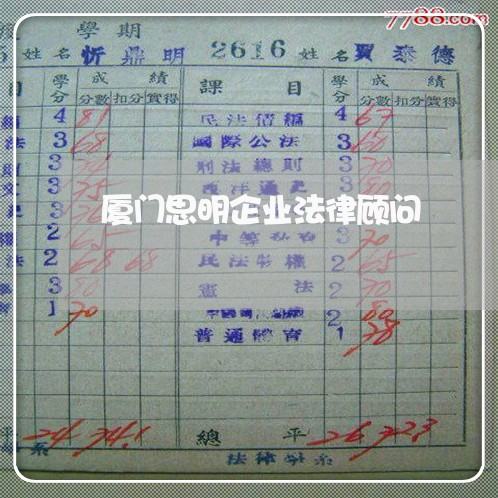 7788.com
學期
姓名 忻鼎明 2616 姓名 賈泰德
目 學分 成績 課目 學分 成績
分數 扣分 實得 分數 扣分 實得
4 81 民法債編 4 67
法 3 68 國際公法 3 60
3 刑法總則 3 70
3 75 西洋通史 3 80
厦门思明企业法律顾问
2 65 3 70
法 2 68 68 民法物權 2 65
3 80 憲法 2 70
1 70 2 80
普通體育 1 78
平 24 74.1 總平 26 72.3
系 法律學系